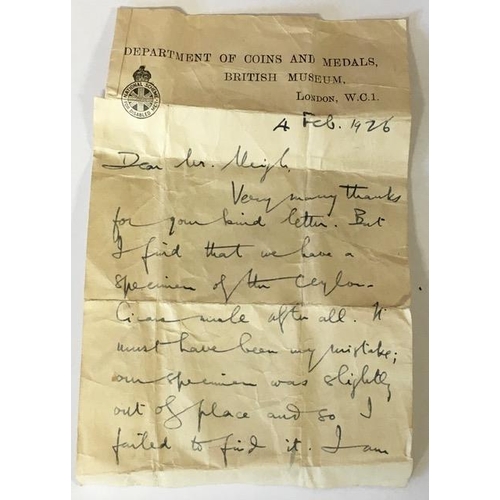 DEPARTMENT OF COINS AND MEDALS,
BRITISH MUSEUM,
LONDON, W.C.1.
4 Feb. 1926
Dear Mr. Neigh,
Very many thanks
for your kind letter. But
I find that we have a
specimen of the Ceylon
male after all. It
must have been my mistake;
our specimen was slightly
out of place and so I
failed to find it. I am